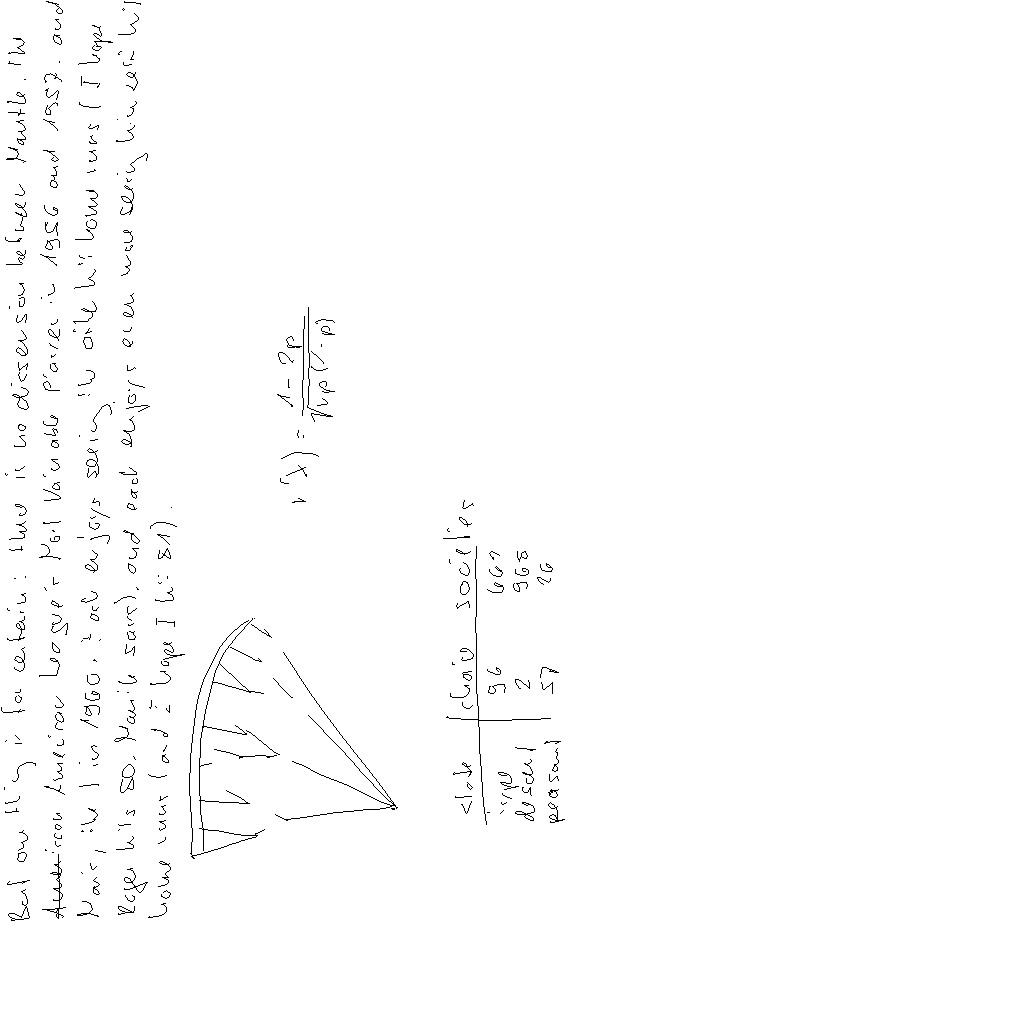 But one thing is for certain: there is no dissension between Mantle, the
American League's Most Valuable Player in 1956 and 1957, and
Maris, the 1 in 1960. Each enjoys seeing the other hit home runs (I hope
Roger hits 80, Mantle says), and each enjoys even more seeing himself hit
home runs (and I hope I hit 81).
v(X) = 1-2p / √np(1-p)
slode choie societies
type 96 667
desert 2 968
peasant 57 26